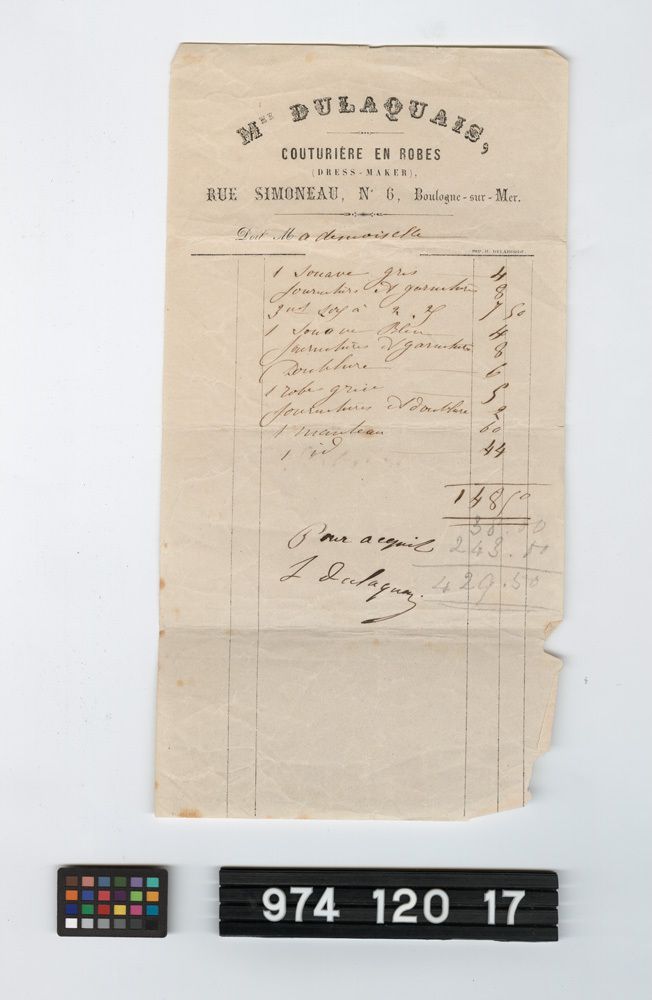 Mme DULAQUAIS,
COUTURIÈRE EN ROBES
(DRESS-MAKER),
RUE SIMONEAU, N° 6, Boulogne-sur-Mer.
Doit Mademoiselle
1 Zouave gris 4
fournitures et garniture 8
à 2.5 7 50
1 Zouave Bleu 4
fournitures et garniture 8
Doublure 6
1 robe grise 5
fournitures et doublure 2
1 manteau 60
1 id 44
148 50
243.50
Pour acquit
429.50
J Dulaquais
974 120 17